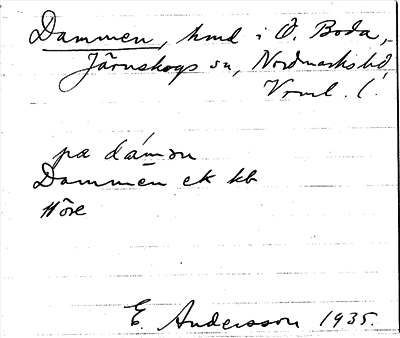 Dammen, hmd i Ö. Boda,
Järnskogs sn, Nordmarks hd
Vrml. l.
pa dámən
Dammen ek kb
Höre
E. Andersson 1935.